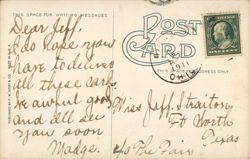 THIS SPACE FOR WRITING MESSAGES
POST
CARD
Dear Jeff.
I do hope you
have to deliver
all these cards.
Be awful good
and I'll see
you soon
Madge.
1911
OHIO
ADDRESS ONLY
Miss Jeff. Straiton
Ft Worth
Texas
℅ The Fair.